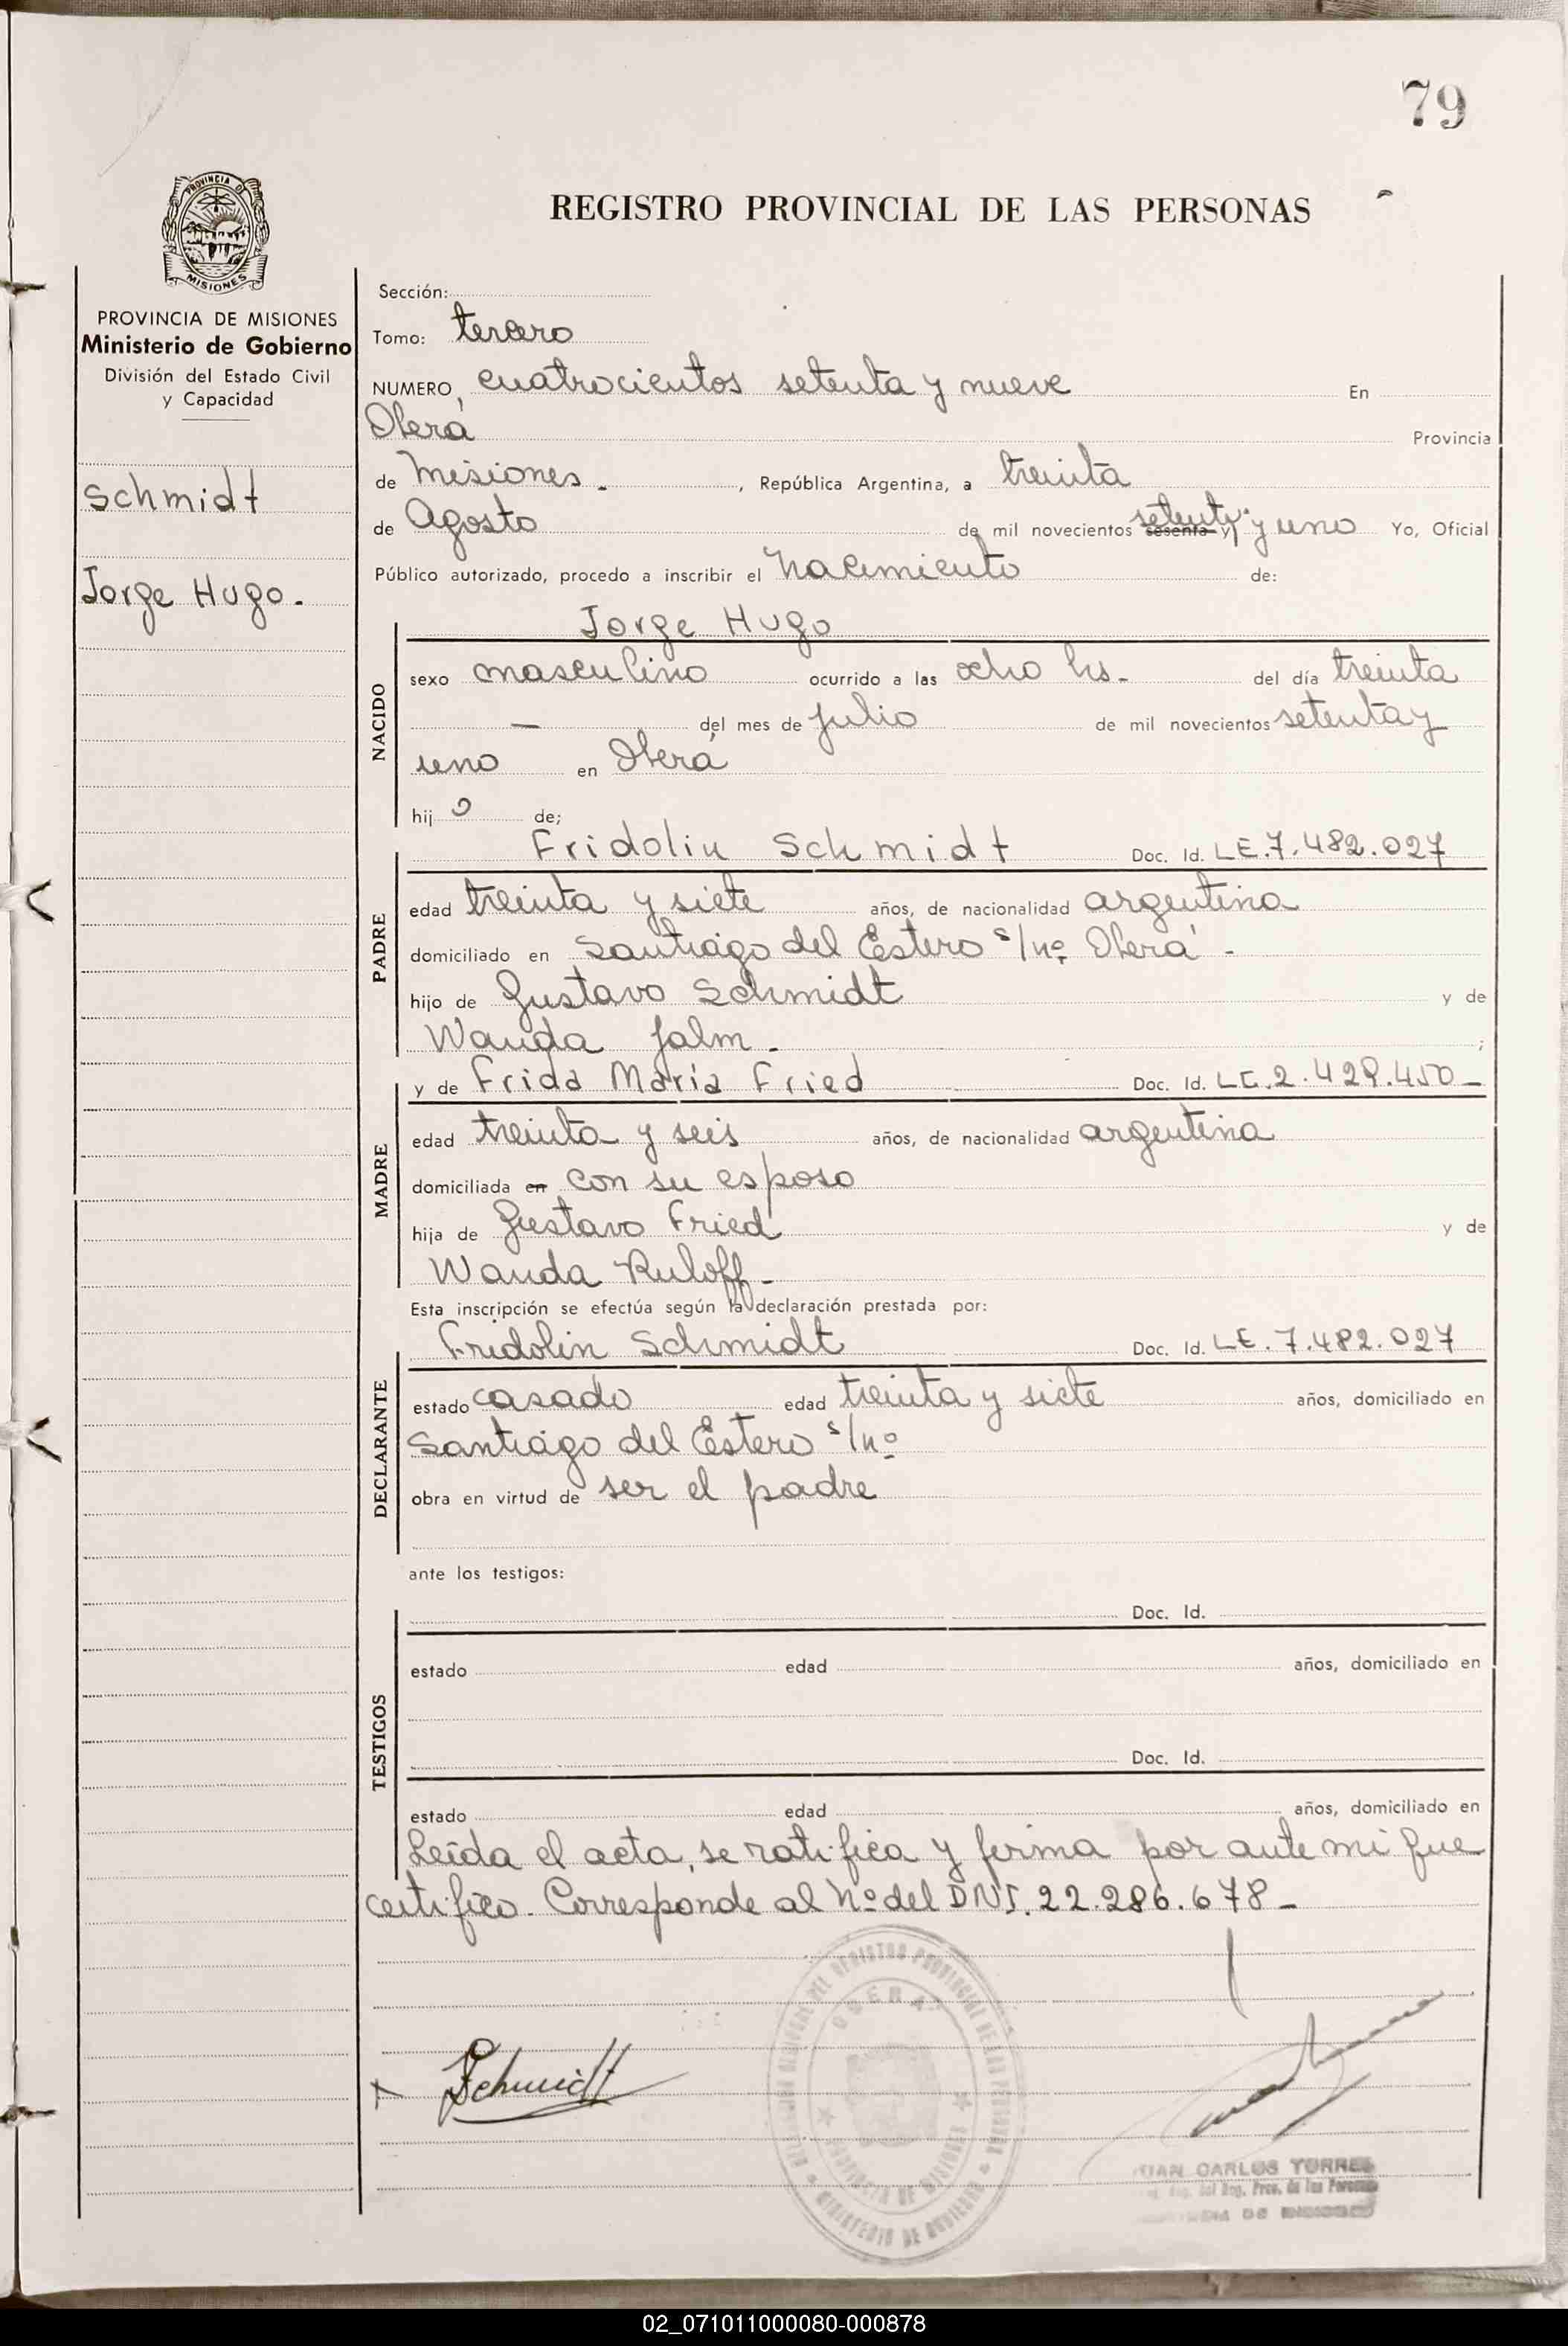 79
PROVINCIA DE
MISIONES
REGISTRO PROVINCIAL DE LAS PERSONAS
PROVINCIA DE MISIONES
Ministerio de Gobierno
División del Estado Civil
y Capacidad
Schmidt
Jorge Hugo.
Sección:
Tomo: tercero
NUMERO, cuatrocientos setenta y nueve En
Oberá Provincia
de Misiones. , República Argentina, a treinta
de Agosto de mil novecientos sesenta y setenta y uno Yo, Oficial
Público autorizado, procedo a inscribir el nacimiento de:
Jorge Hugo
NACIDO
sexo masculino ocurrido a las ocho hs. del día treinta
— del mes de julio de mil novecientos setenta y
uno en Oberá
hij o de;
Fridolin Schmidt Doc. Id. LE.7.482.027
PADRE
edad treinta y siete años, de nacionalidad argentina
domiciliado en Santiago del Estero s/nº Oberá -
hijo de Gustavo Schmidt y de
Wanda Jalm. ;
y de Frida María Fried Doc. Id. LC.2.429.450-
MADRE
edad treinta y seis años, de nacionalidad argentina
domiciliada en con su esposo
hija de Gustavo Fried y de
Wanda Ruloff-
Esta inscripción se efectúa según la declaración prestada por:
Fridolin Schmidt Doc. Id. LE. 7.482.027
DECLARANTE
estado casado edad treinta y siete años, domiciliado en
Santiago del Estero s/nº
obra en virtud de ser el padre
ante los testigos:
TESTIGOS
Doc. Id.
estado edad años, domiciliado en
Doc. Id.
estado edad años, domiciliado en
Leída el acta, se ratifica y firma por ante mi que
certifico. Corresponde al Nº del DNI. 22.286.678-
Schmidt
REGISTRO PROVINCIAL DE LAS PERSONAS
OBERA
PROVINCIA DE MISIONES
MINISTERIO DE GOBIERNO
JUAN CARLOS TORRES
del Reg. Prov. de las Personas
DE MISIONES
02_071011000080-000878